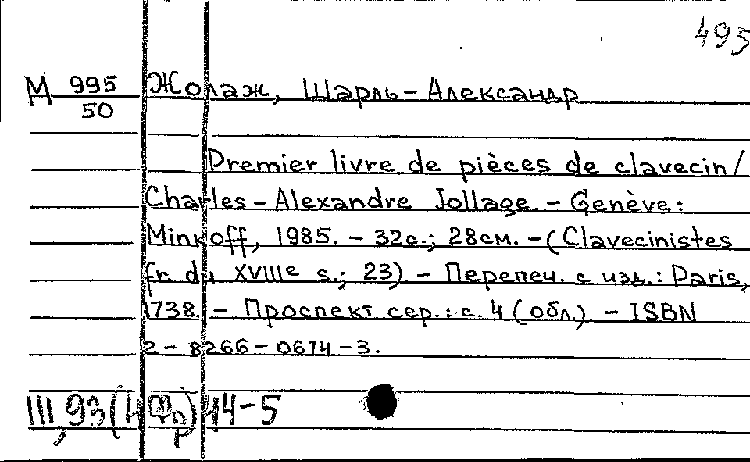 495
М 995/50 Жолаж, Шарль-Александр
Premier livre de pièces de clavecin /
Charles-Alexandre Jollage. - Genève:
Minkoff, 1985. - 32с.; 28см. - (Clavecinistes
fr. du XVIIIe s.; 23). - Перепеч. с изд.: Paris,
1738. - Проспект сер.: с. 4 (обл.) - ISBN
2-8266-0674-3.
III,93(4Фр)44-5